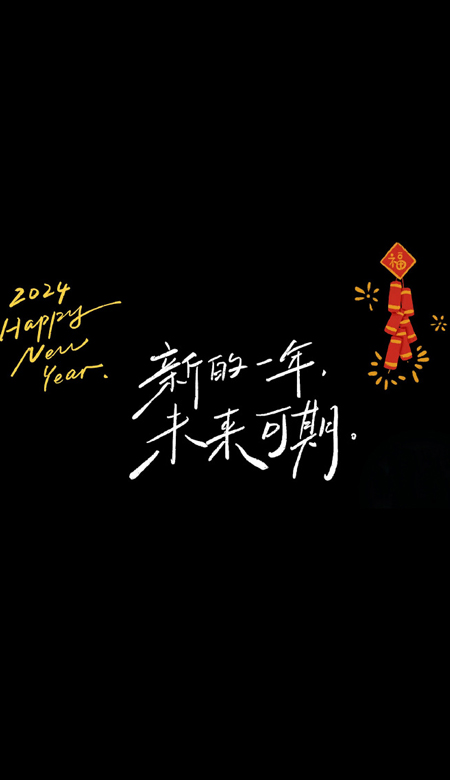 福
2024
Happy
New
Year.
新的一年,
未来可期。